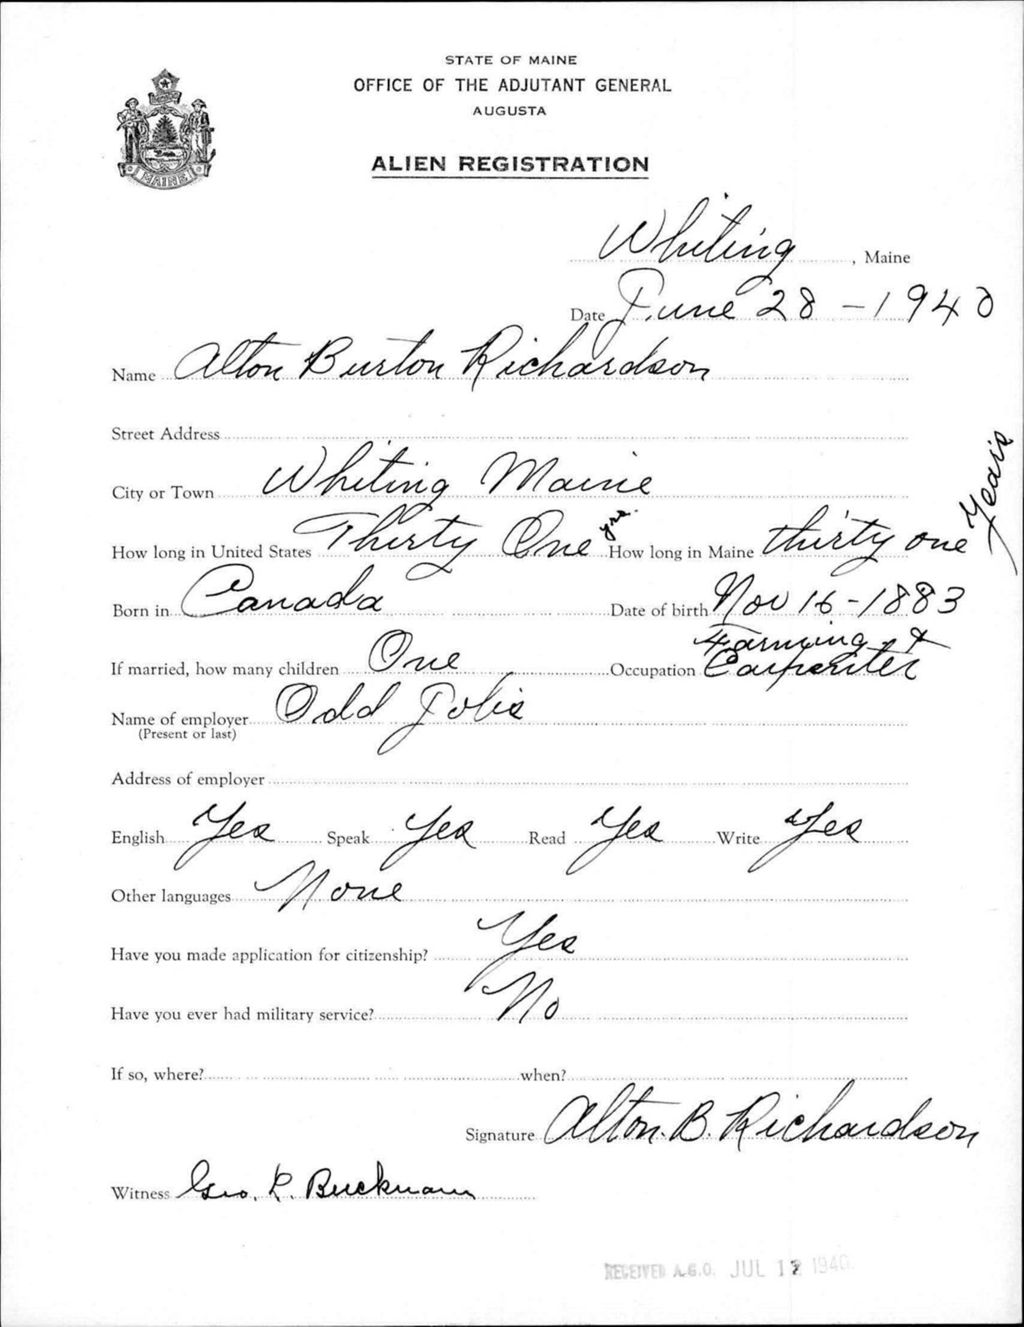 STATE OF MAINE
OFFICE OF THE ADJUTANT GENERAL
AUGUSTA
ALIEN REGISTRATION
MAINE
Whiting, Maine
Date June 28 - 1940
Name Alton Burton Richardson
Street Address
City or Town Whiting Maine
How long in United States Thirty One yrs. How long in Maine thirty one Years
Born in Canada Date of birth Nov 16 - 1883
If married, how many children One Occupation Farming & Carpenter
Name of employer Odd Jobs
(Present or last)
Address of employer
English Yes Speak Yes Read Yes Write Yes
Other languages None
Have you made application for citizenship? Yes
Have you ever had military service? No
If so, where? when?
Signature Alton. B. Richardson
Witness Geo. R. Bucknam
RECEIVED A.G.O. JUL 12 1940